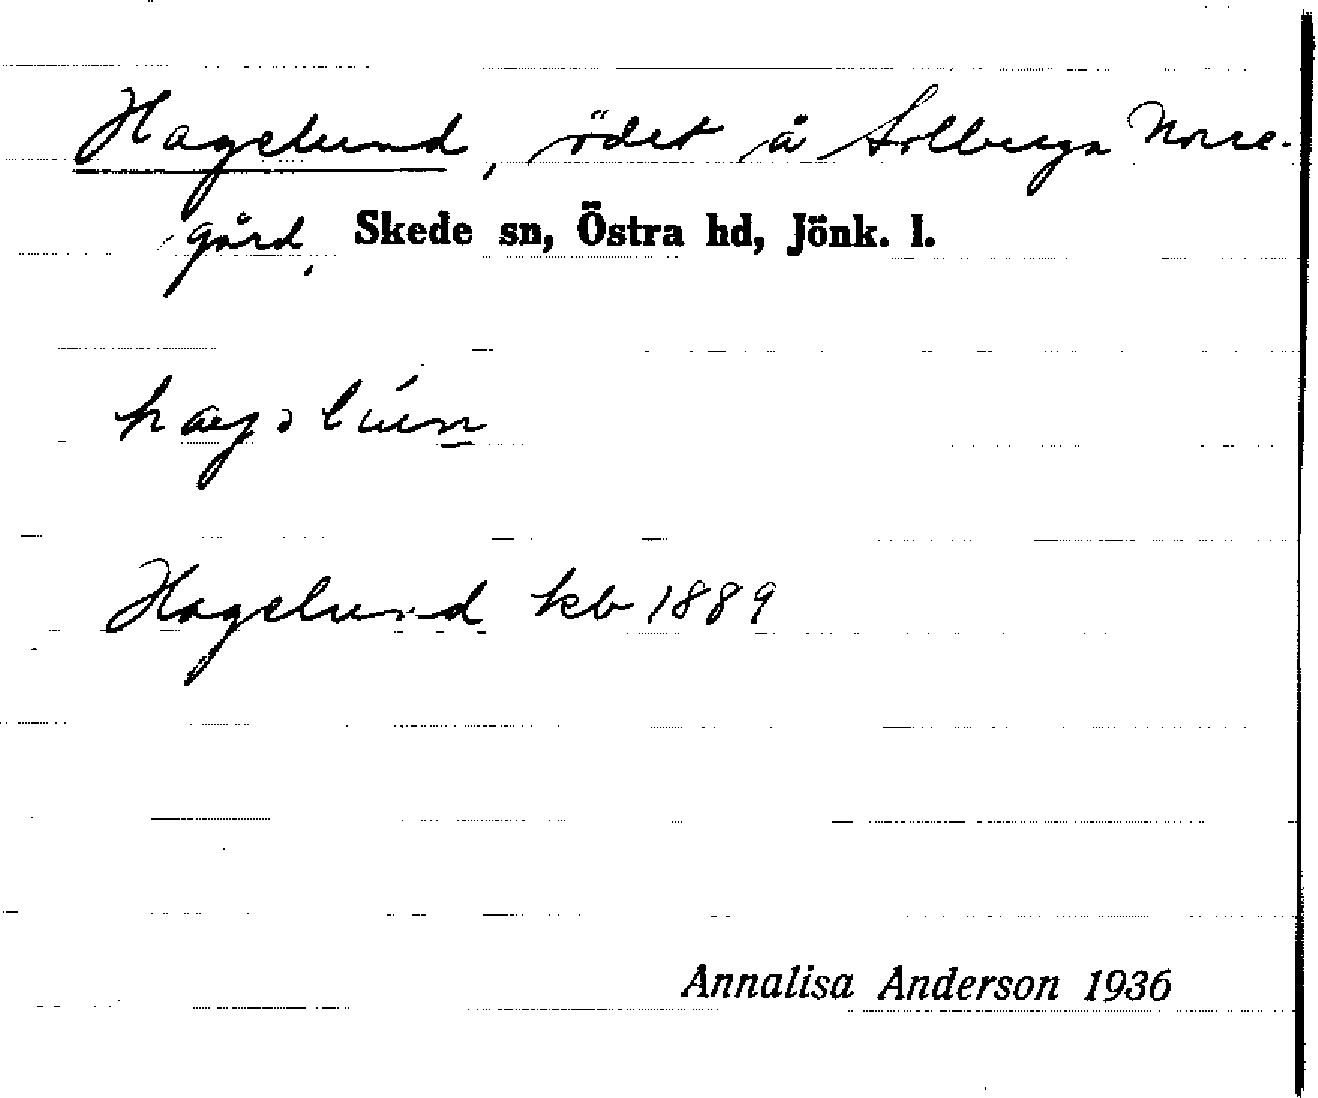 Hagelund, ödet å Solberga Norre-
gård, Skede sn, Östra hd, Jönk. l.
Hagelund kb 1889
Annalisa Anderson 1936